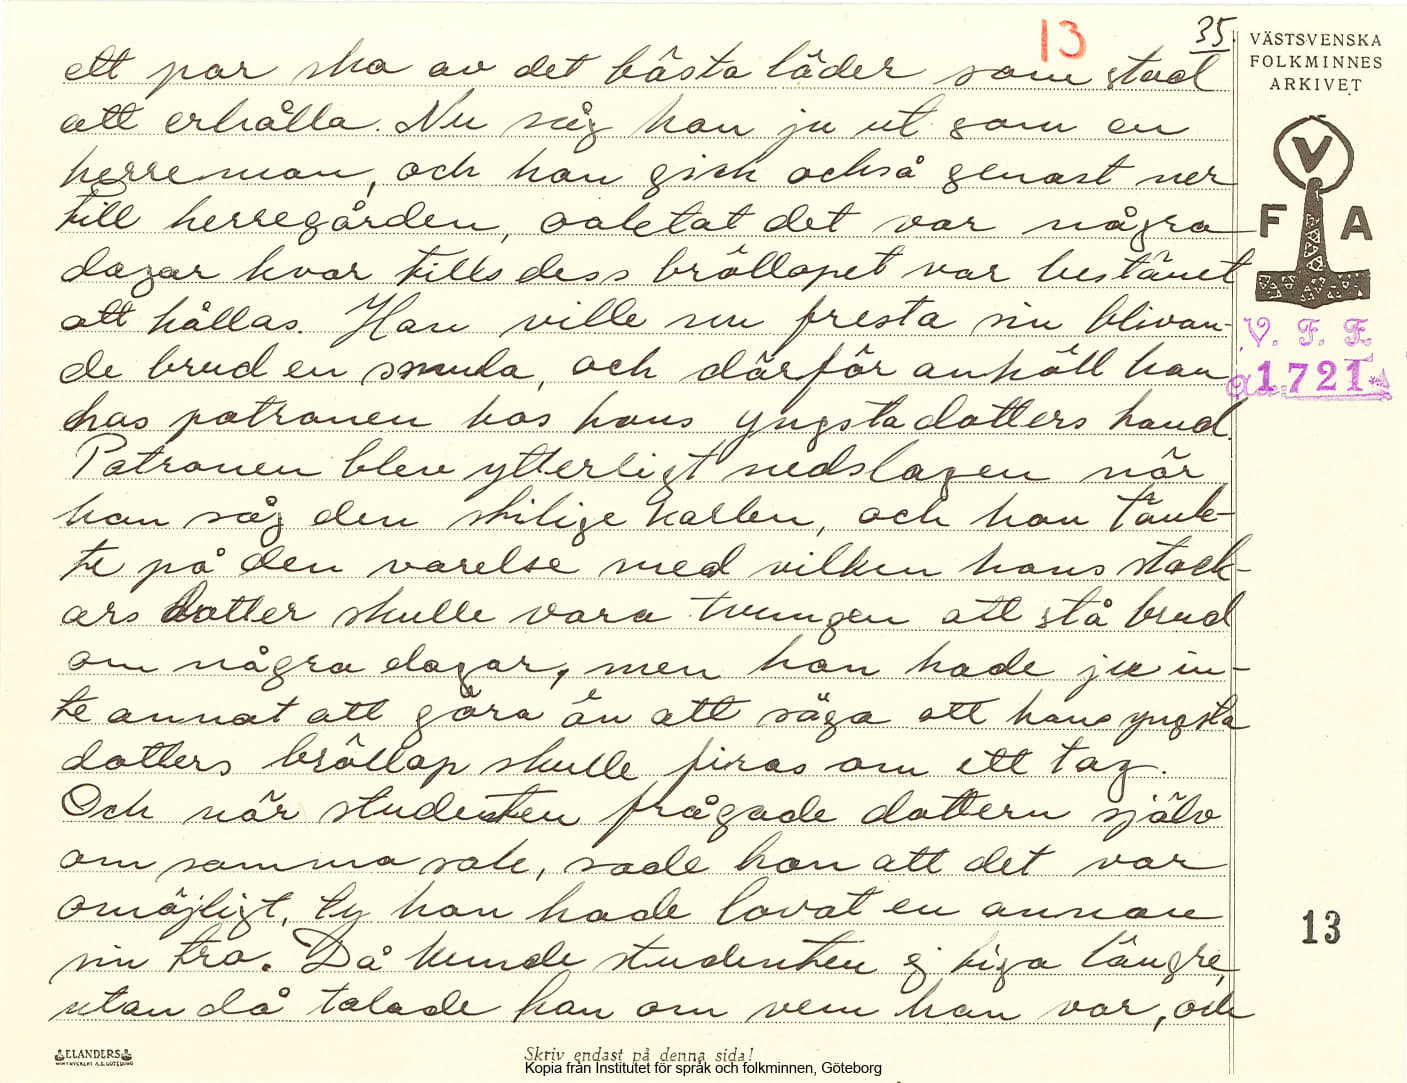 13
35.
VÄSTSVENSKA
FOLKMINNES
ARKIVET
V
F A
V. F. F.
1721
ett par sko av det bästa läder som stod
att erhålla. Nu såg han ju ut som en
herreman, och han gick också genast ner
till herregården, oaktat det var några
dagar kvar tills dess bröllopet var bestämt
att hållas. Han ville nu fresta sin blivan-
de brud en smula, och därför anhöll han
hos patronen hos hans yngsta dotters hand.
Patronen blev ytterligt nedslagen när
han såg den stilige karlen, och han tänk-
te på den varelse med vilken hans stack-
ars dotter skulle vara tvungen att stå brud
om några dagar, men han hade ju in-
te annat att göra än att säga att hans yngsta
dotters bröllop skulle firas om ett tag.
Och när studenten frågade dottern själv
om samma sak, sade hon att det var
omöjligt, ty hon hade lovat en annan
sin tro. Då kunde studenten ej tiga längre,
utan då talade han om vem han var, och
13
ELANDERS
Skriv endast på denna sida!
Kopia från Institutet för språk och folkminnen, Göteborg